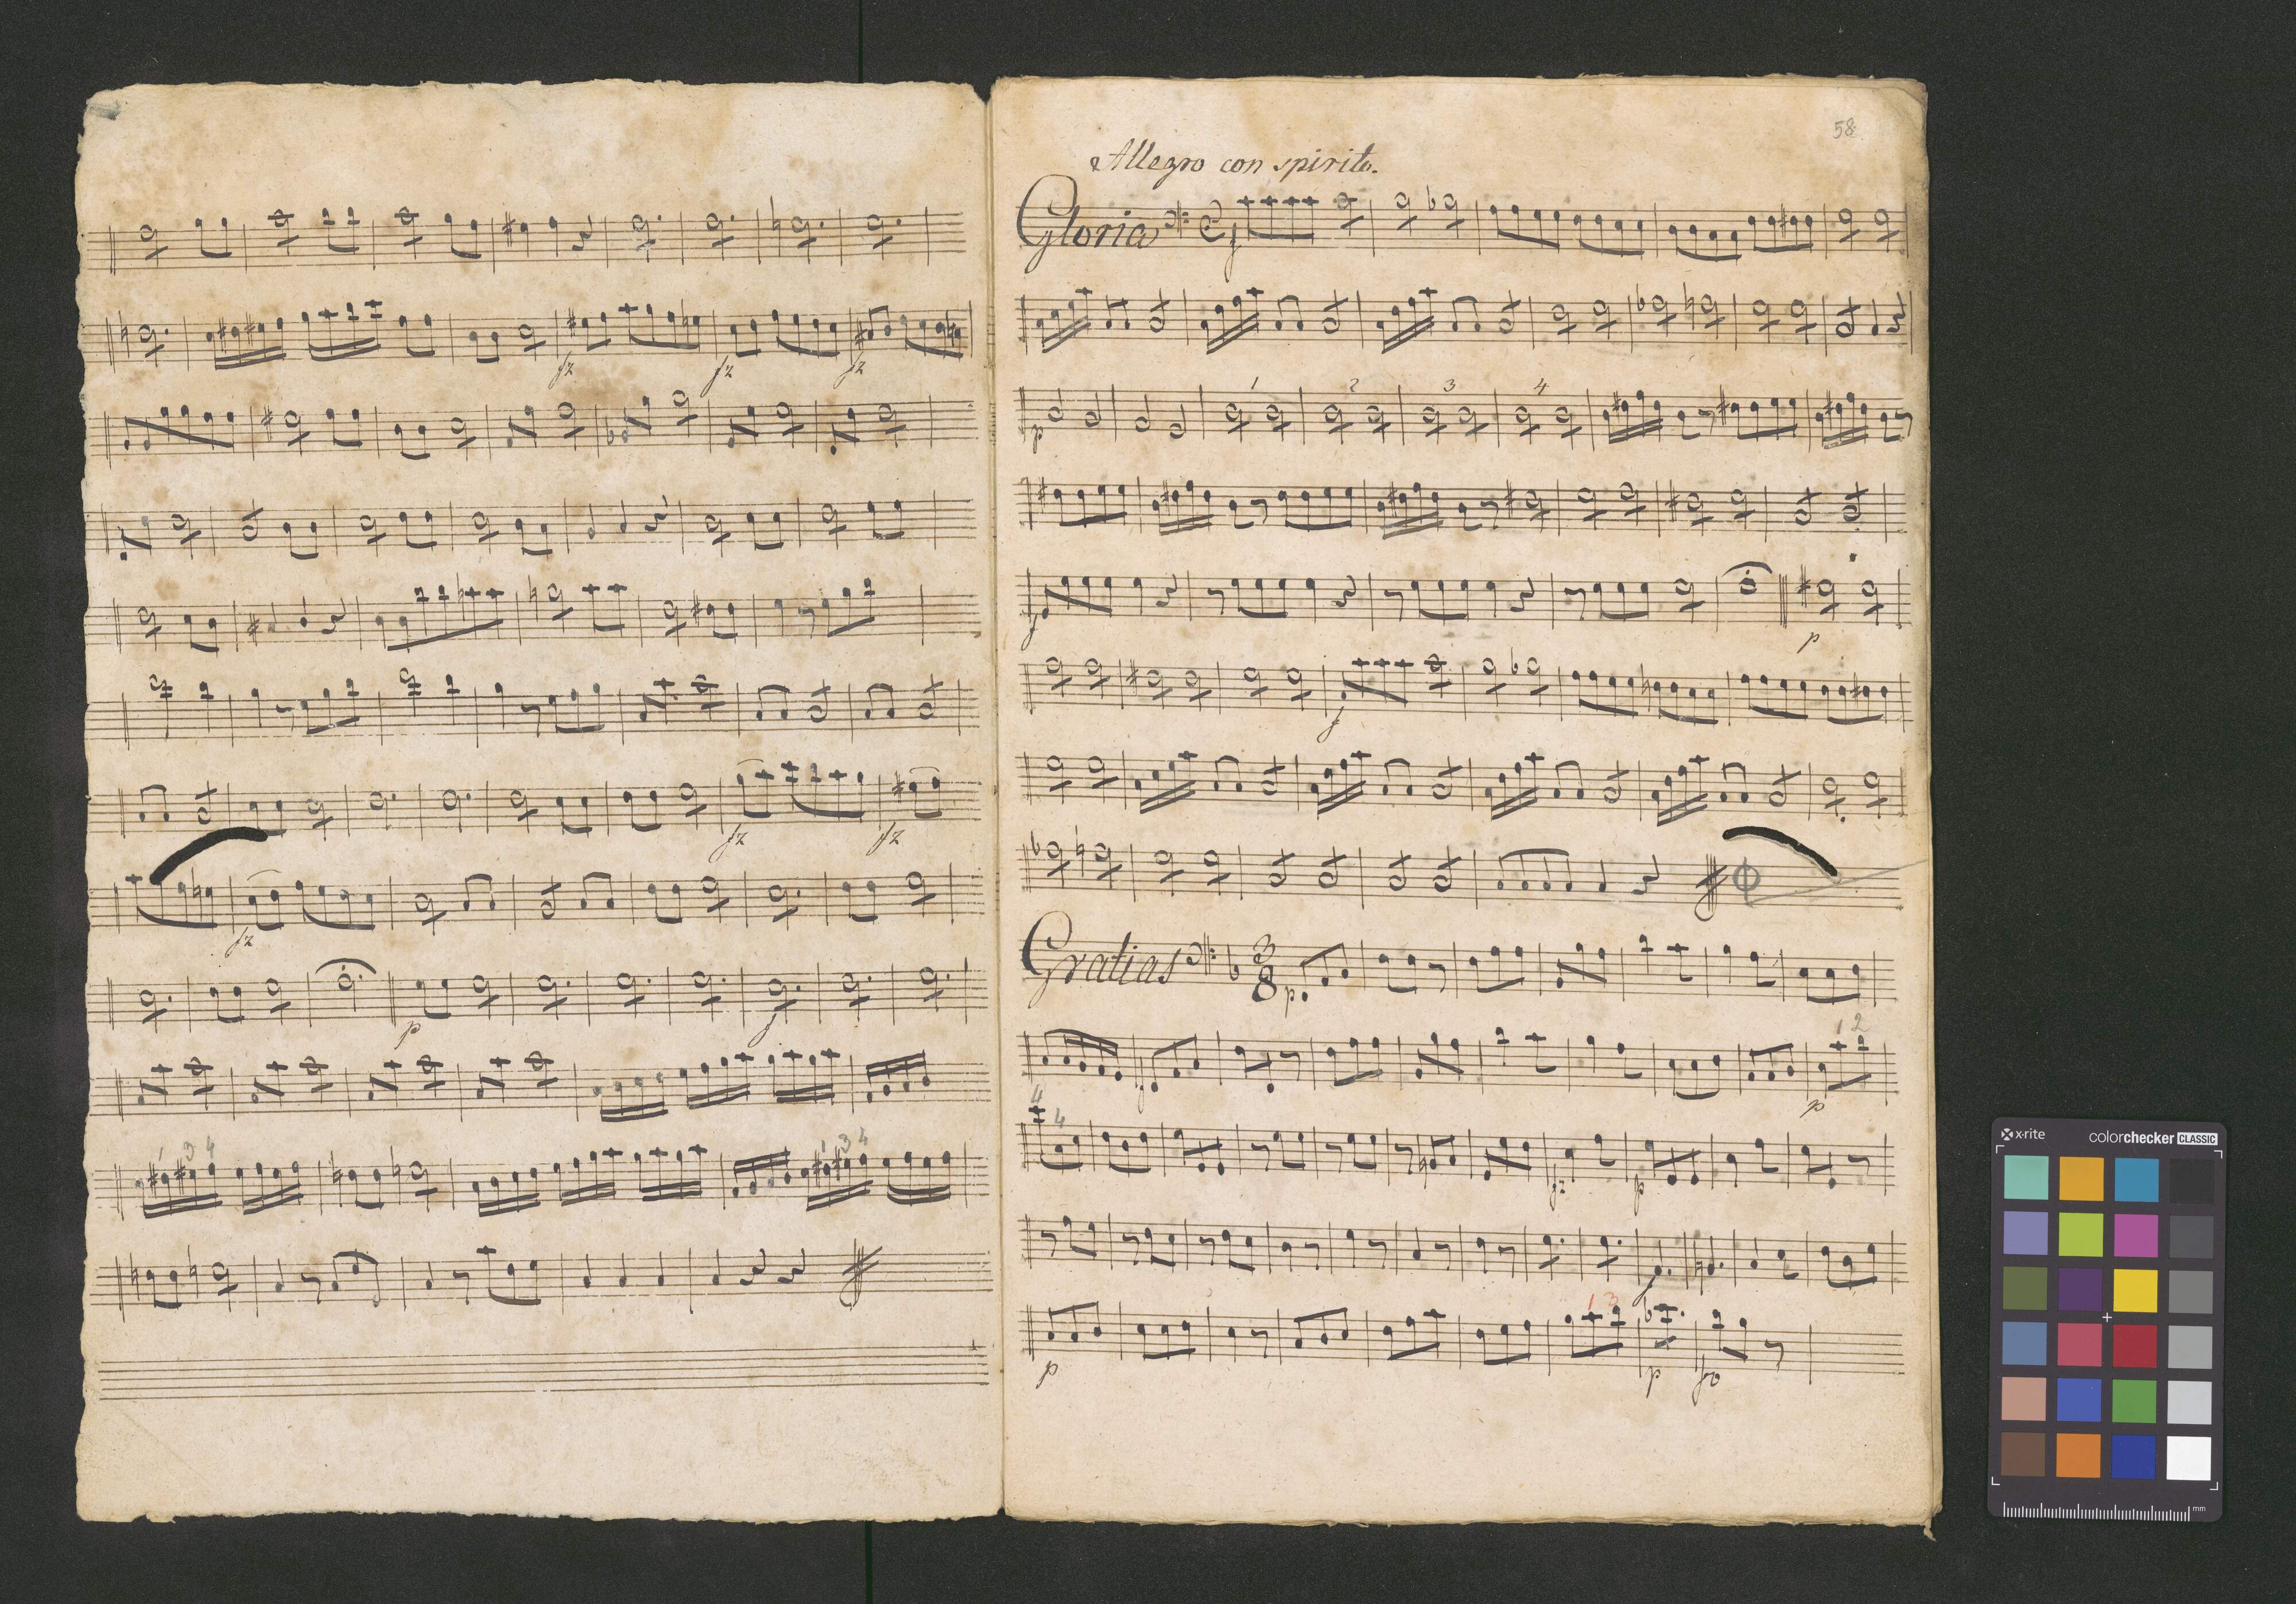 fz fz fz
fz fz
fz
p f
1 3 4 1 3 4
58
Allegro con spirito.
Gloria f
p 1 2 3 4
f p
f
Gratias 3 8 p.
1 2
f p
4 4
fz p
f
1 3
p p fp
x-rite colorchecker CLASSIC
mm